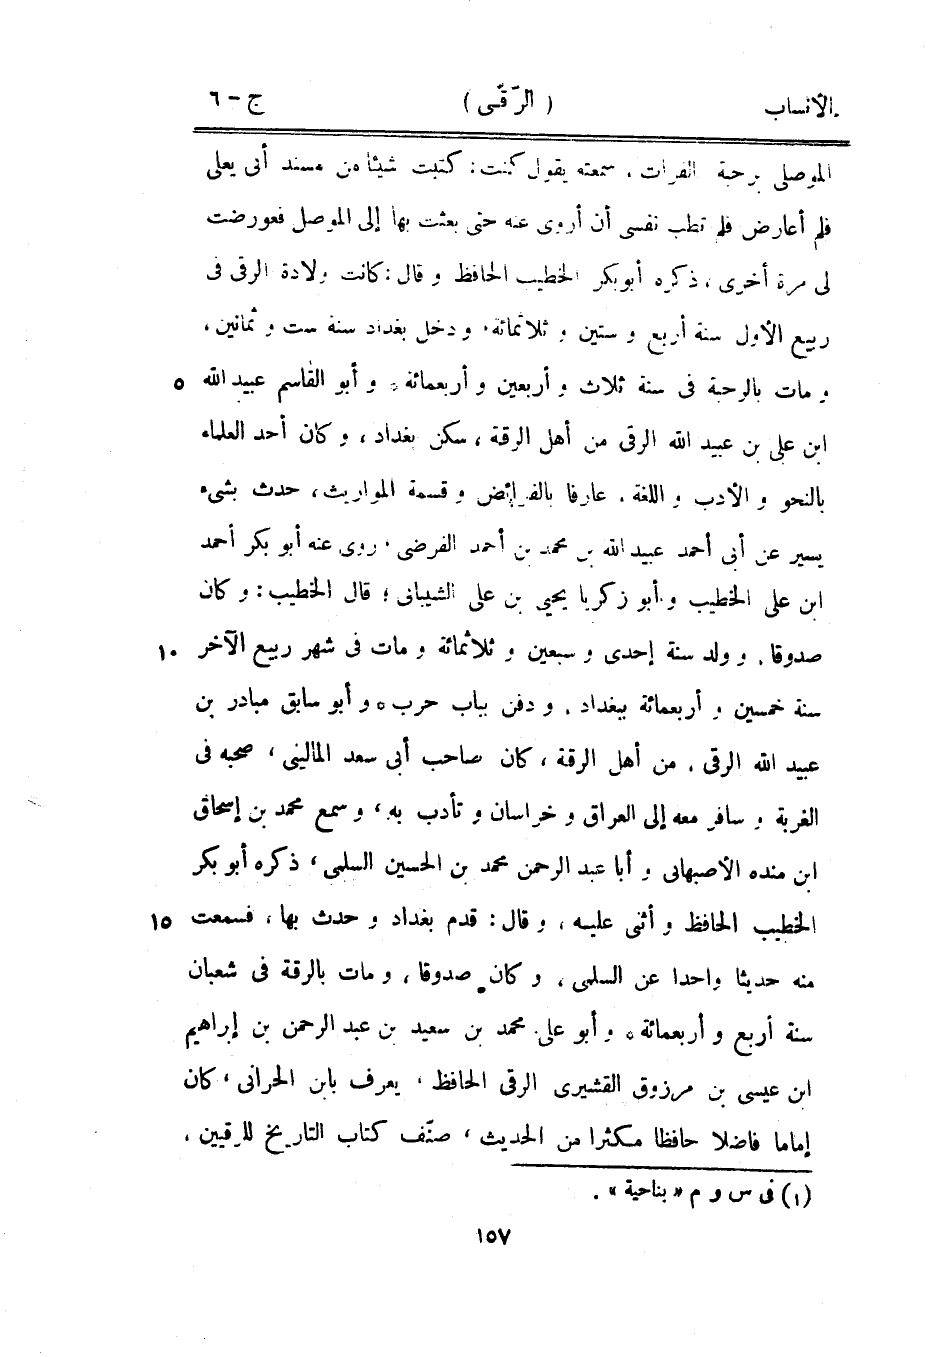 الأنساب ( الرّقّى ) ج - ٦
الموصلى برحبة الفرات ، سمعته يقول كنت : كتبت شيئا من مسند أبى يعلى
فلم أعارض فلم تطب نفسى أن أروى عنه حتى بعثت بها إلى الموصل فعورضت
لى مرة أخرى ، ذكره أبو بكر الخطيب الحافظ و قال : كانت ولادة الرقى فى
ربيع الأول سنة أربع و ستين و ثلاثمائة ، و دخل بغداد سنة ست و ثمانين ،
و مات بالرحبة فى سنة ثلاث و أربعين و أربعمائة ٥ و أبو القاسم عبيد الله ٥
ابن على بن عبيد الله الرقى من أهل الرقة ، سكن بغداد ، و كان أحد العلماء
بالنحو و الأدب و اللغة ، عارفا بالفرائض و قسمة المواريث ، حدث بشىء
يسير عن أبى أحمد عبيد الله بن محمد بن أحمد الفرضى ، روى عنه أبو بكر أحمد
ابن على الخطيب و أبو زكريا يحيى بن على الشيبانى ؛ قال الخطيب : و كان
صدوقا ، و ولد سنة إحدى و سبعين و ثلاثمائة و مات فى شهر ربيع الآخر ١٠
سنة خمسين و أربعمائة ببغداد ، و دفن بباب حرب ٥ و أبو سابق مبادر بن
عبيد الله الرقى ، من أهل الرقة ، كان صاحب أبى سعد المالينى ، صحبه فى
الغربة و سافر معه إلى العراق و خراسان و تأدب به ، و سمع محمد بن إسحاق
ابن منده الأصبهانى و أبا عبد الرحمن محمد بن الحسين السلمى ، ذكره أبو بكر
الخطيب الحافظ و أثنى عليه ، و قال : قدم بغداد و حدث بها ، فسمعت ١٥
منه حديثا واحدا عن السلمى ، و كان صدوقا ، و مات بالرقة فى شعبان
سنة أربع و أربعمائة ٥ و أبو على محمد بن سعيد بن عبد الرحمن بن إبراهيم
ابن عيسى بن مرزوق القشيرى الرقى الحافظ ، يعرف بابن الحرانى ، كان
إماما فاضلا حافظا مكثرا من الحديث ، صنّف كتاب التاريخ للرقيين ،
(١) فى س و م « بناحية » .
١٥٧